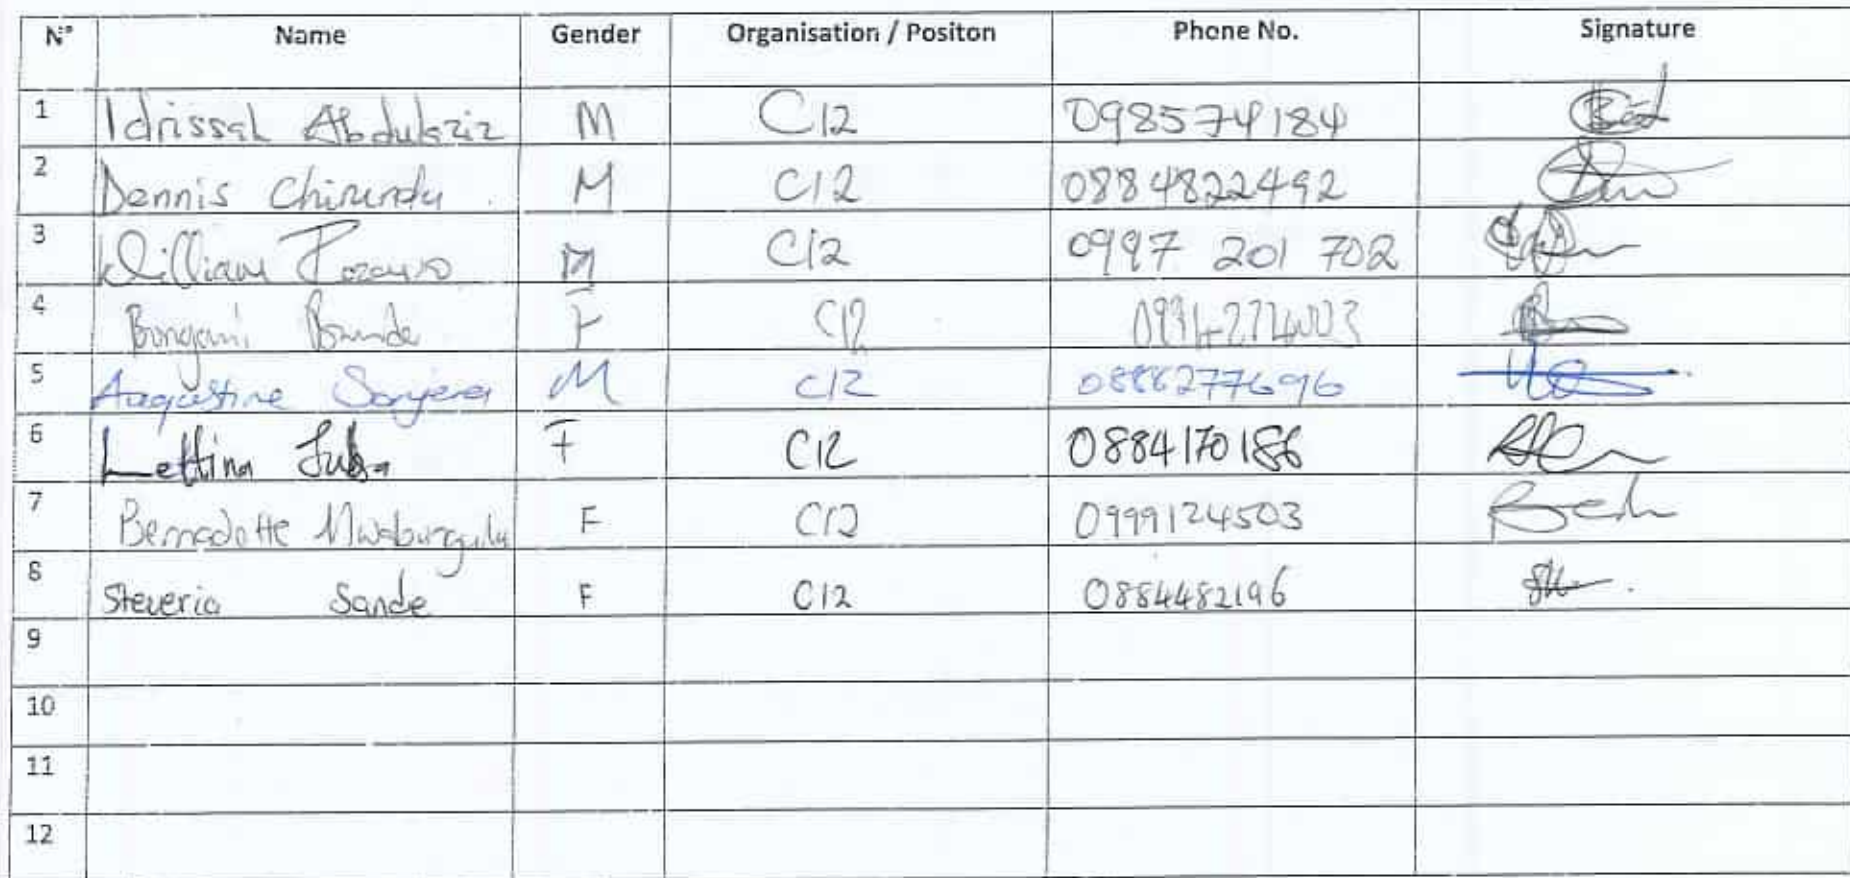 N° Name Gender Organisation / Positon Phone No. Signature
1 Idrissah Abdulaziz M C12 098574184
2 Dennis Chirundu M C12 0884822492
3 William M C12 0997 201 702
4 Bongani F C12
5 Augustine Sanjera M C12 0888277696
6 Lettina Juba F C12 0884170186
7 Bernadette F C12 0999124503
8 Steveria Sande F C12 0884482196
9
10
11
12